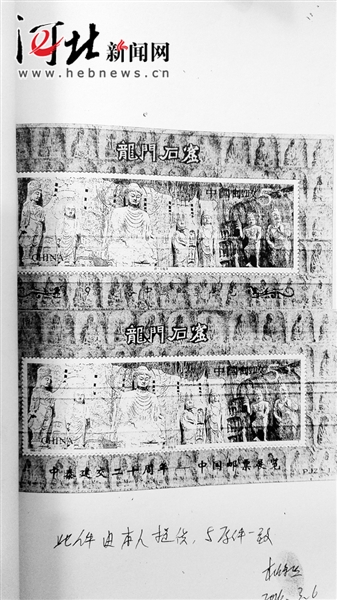 河北新闻网
www.hebnews.cn
龍門石窟
中国邮政
CHINA
龍門石窟
中国邮政
CHINA
中泰建交二十周年 中国邮票展览
PJZ-1
此件由本人提供，与原件一致